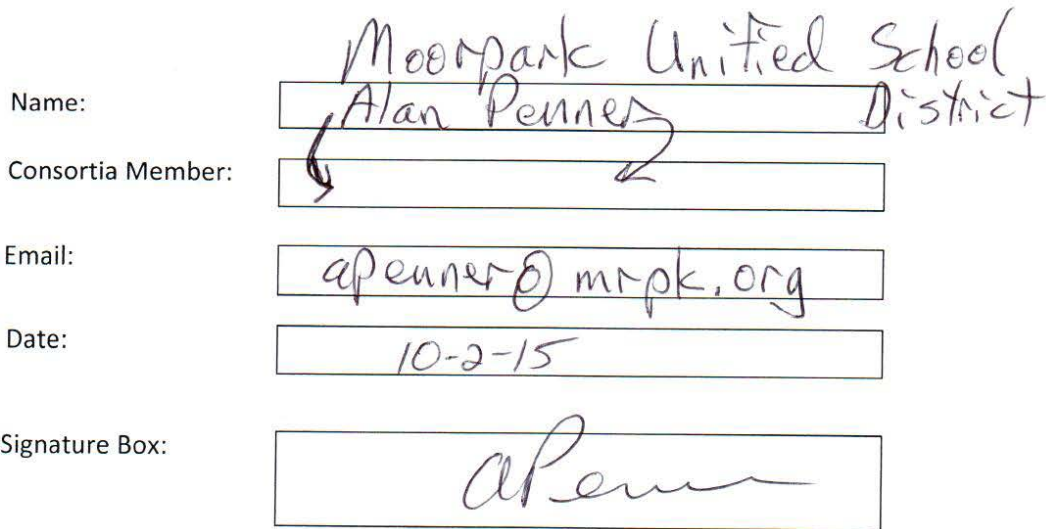 Moorpark Unified School
Name: Alan Penner District
Consortia Member:
Email: apenner@mrpk.org
Date: 10-2-15
Signature Box: aPenner